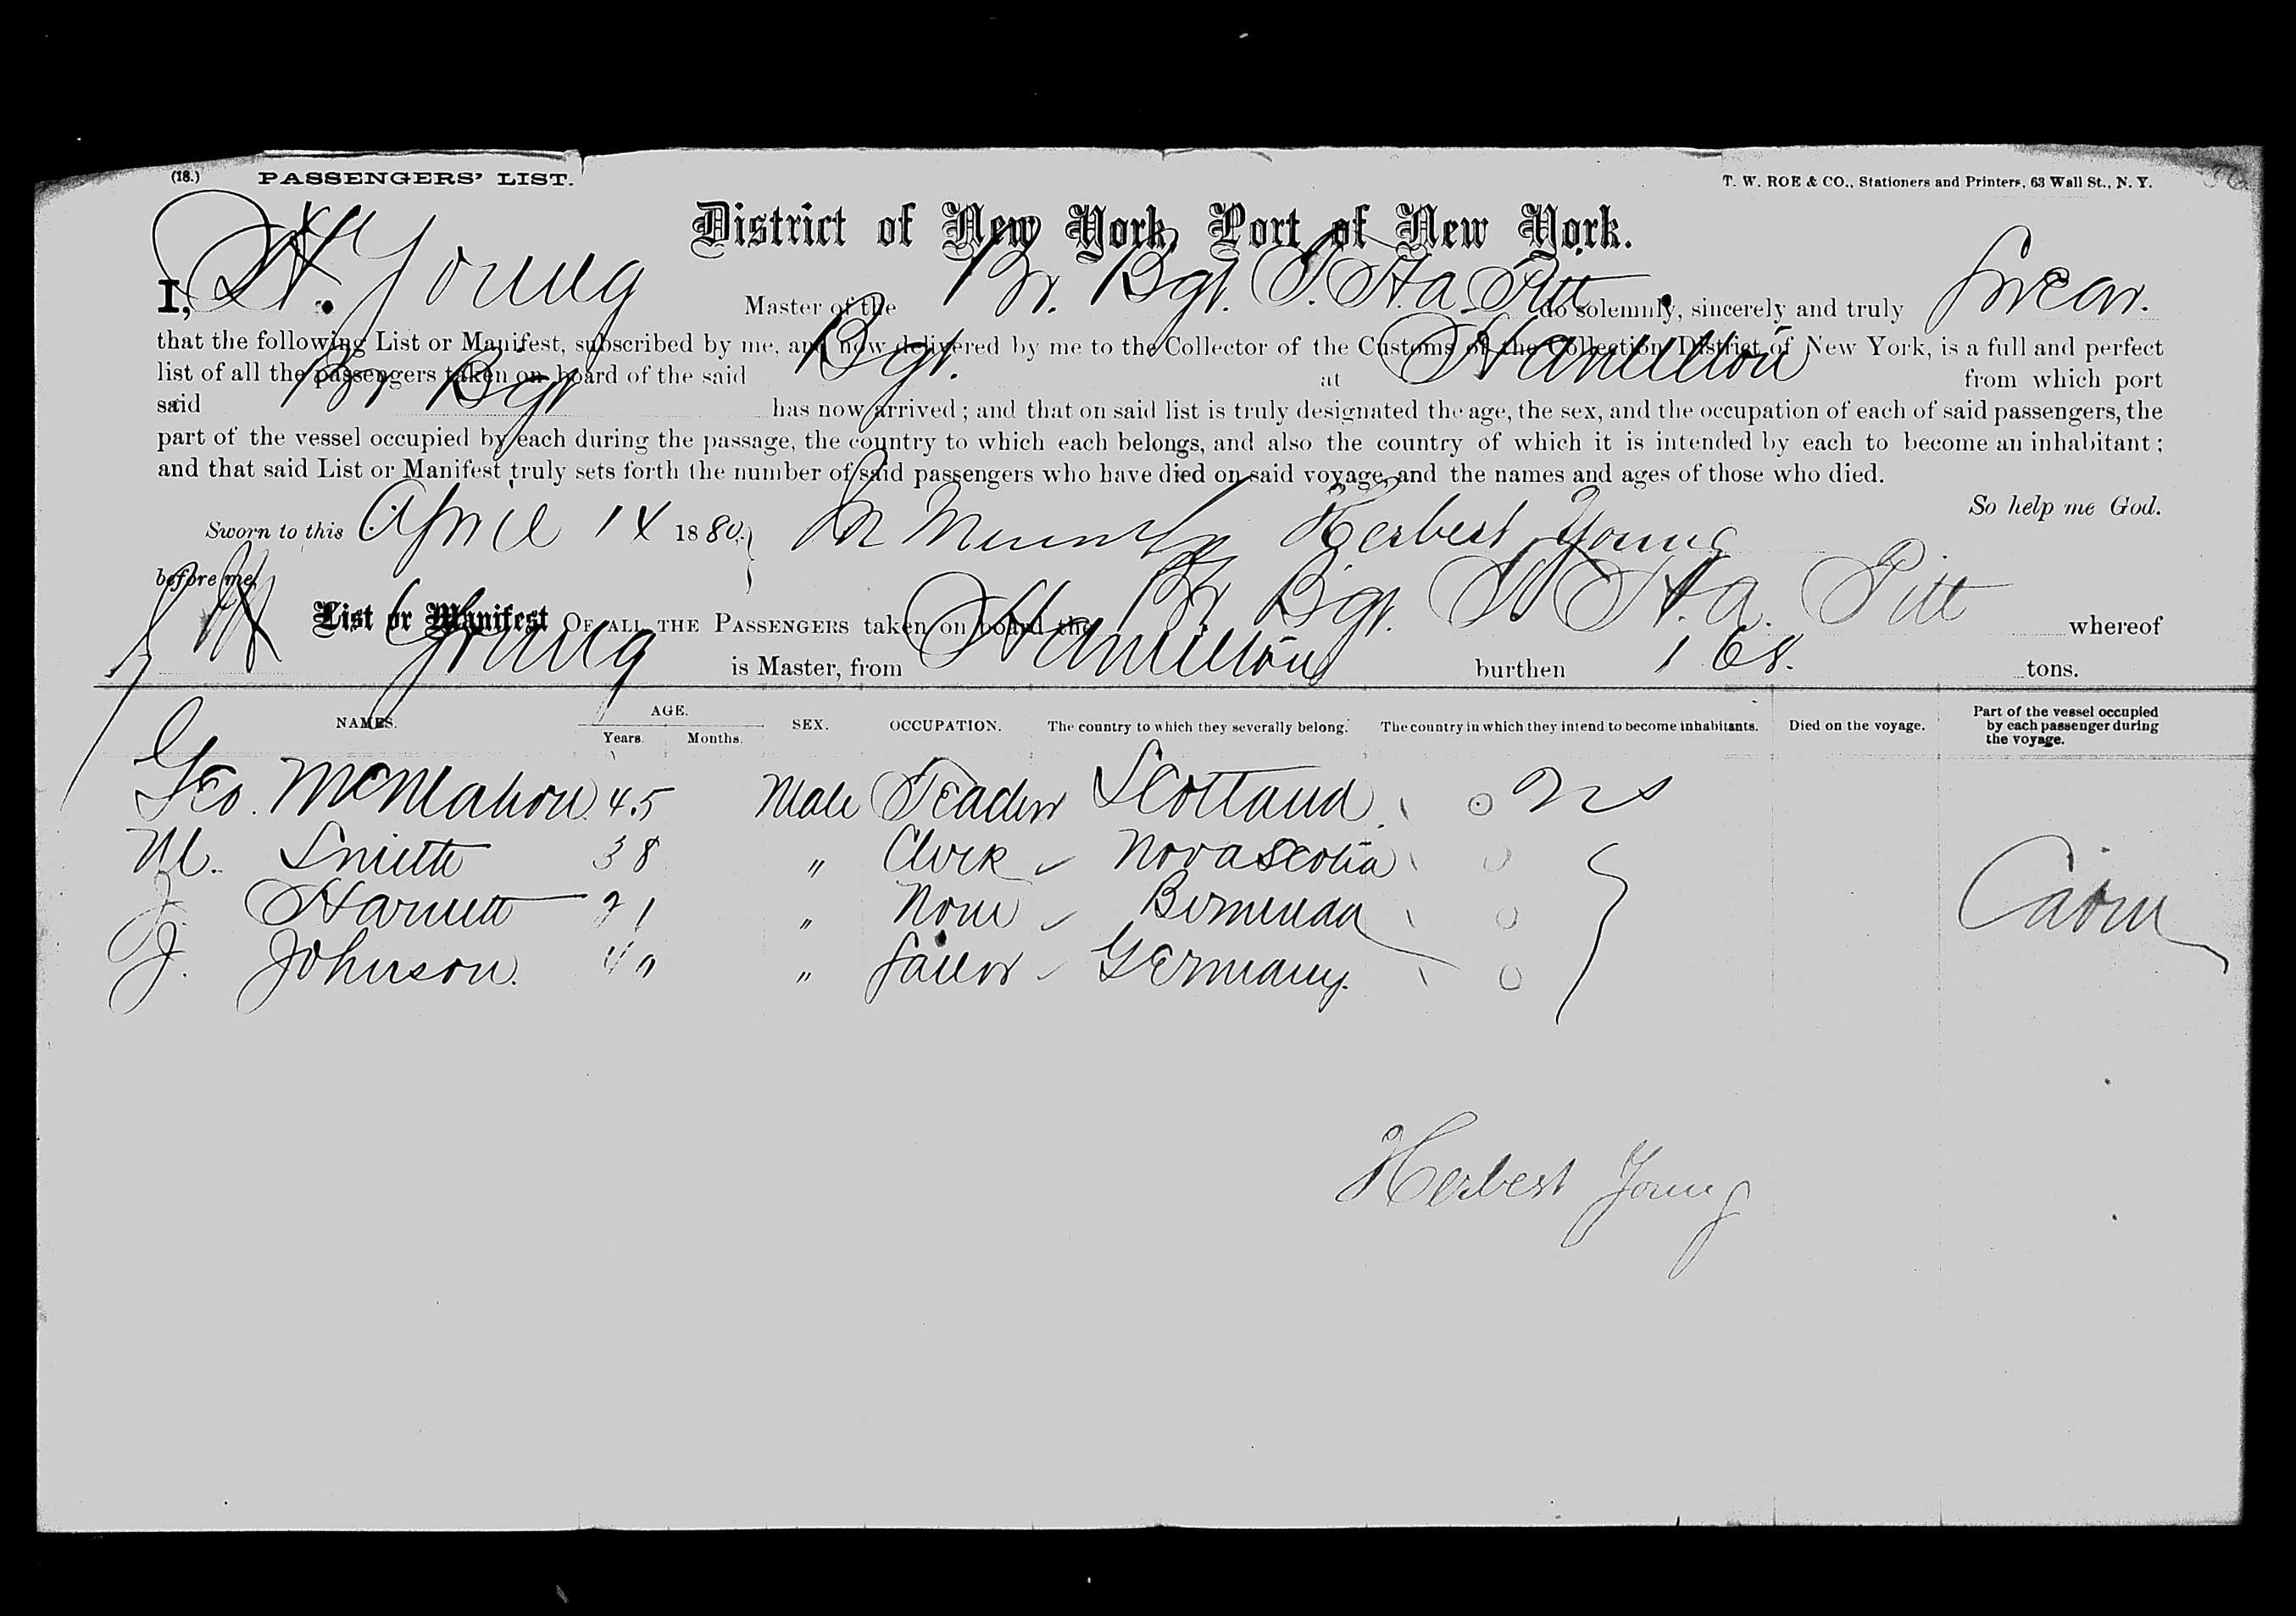 (18.) PASSENGERS' LIST. T. W. ROE & CO., Stationers and Printers, 63 Wall St., N. Y.
District of New York, Port of New York.
I, H. Young Master of the Br. Bgt. T. H. A. Pitt do solemnly, sincerely and truly swear.
that the following List or Manifest, subscribed by me, and now delivered by me to the Collector of the Customs of the Collection District of New York, is a full and perfect
list of all the passengers taken on board of the said Bgt. at Hamilton from which port
said Br Bgt has now arrived; and that on said list is truly designated the age, the sex, and the occupation of each of said passengers, the
part of the vessel occupied by each during the passage, the country to which each belongs, and also the country of which it is intended by each to become an inhabitant;
and that said List or Manifest truly sets forth the number of said passengers who have died on said voyage, and the names and ages of those who died.
So help me God.
Sworn to this April 14 1880. Herbert Young
before me,
List or Manifest OF ALL THE PASSENGERS taken on board the Br Bgt. T. H. A. Pitt whereof
H Young is Master, from Hamilton burthen 168. tons.
NAMES. AGE. Years. Months. SEX. OCCUPATION. The country to which they severally belong. The country in which they intend to become inhabitants. Died on the voyage. Part of the vessel occupied by each passenger during the voyage.
Geo. McMahon 45 Male Scotland U S
M. Smith 38 " Clerk Nova Scotia
J. Harnett 21 " None Bermuda Cabin
J. Johnson. 40 " Sailor Germany.
Herbert Young